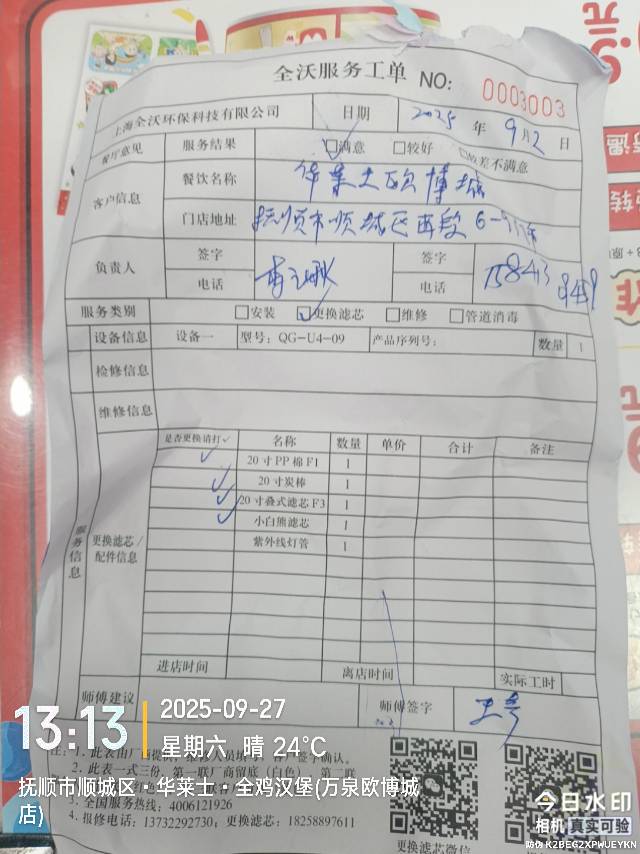 全沃服务工单 NO: 0003003
上海全沃环保科技有限公司 日期 2025 年 9月2 日
餐厅意见 服务结果 ☑满意 □较好 □较差不满意
客户信息 餐饮名称 华莱士欧博城
门店地址 抚顺市顺城区西段6-9门市
负责人 签字 签字
电话 电话 15843 8459
服务类别 □安装 ☑更换滤芯 □维修 □管道消毒
设备信息 设备一 型号: QG-U4-09 产品序列号: 数量 1
检修信息
维修信息
服务信息 更换滤芯/配件信息
是否更换请打✓ 名称 数量 单价 合计 备注
✓ 20寸PP棉F1 1
✓ 20寸炭棒 1
✓ 20寸叠式滤芯F3 1
✓ 小白熊滤芯 1
紫外线灯管 1
进店时间 离店时间 实际工时
师傅建议 师傅签字
注: 1. 此表由厂商提供, 维修人员填写, 客户签字确认。
2. 此表一式三份, 第一联厂商留底(白色), 第二联
3. 全国服务热线: 4006121926
4. 报修电话: 13732292730, 更换滤芯: 18258897611
更换滤芯微信
13:13 2025-09-27
星期六 晴 24°C
抚顺市顺城区·华莱士·全鸡汉堡(万泉欧博城店)
今日水印
相机 真实可验
防伪 K2BEG2XPWUEYKN